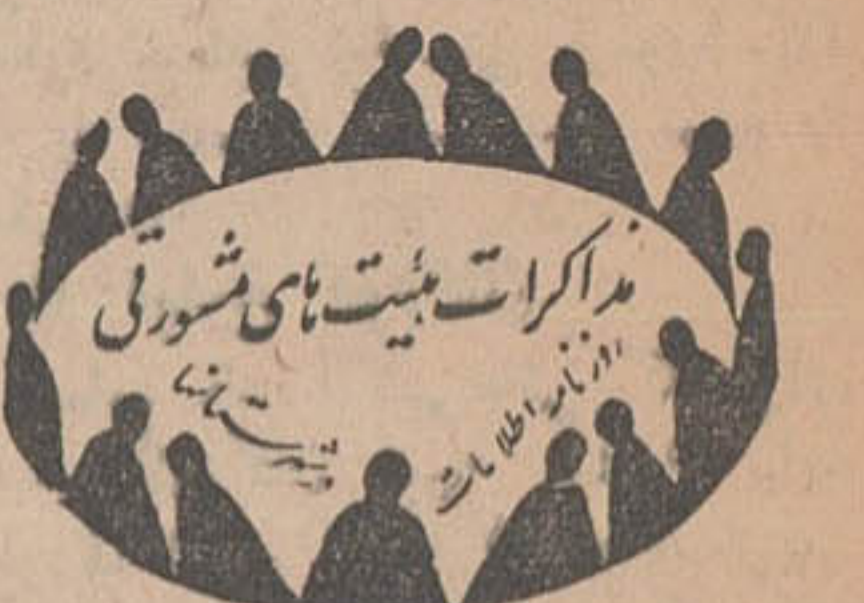 مذاکرات هیئت های مشورتی
روزنامه اطلاعات
در شهرستانها